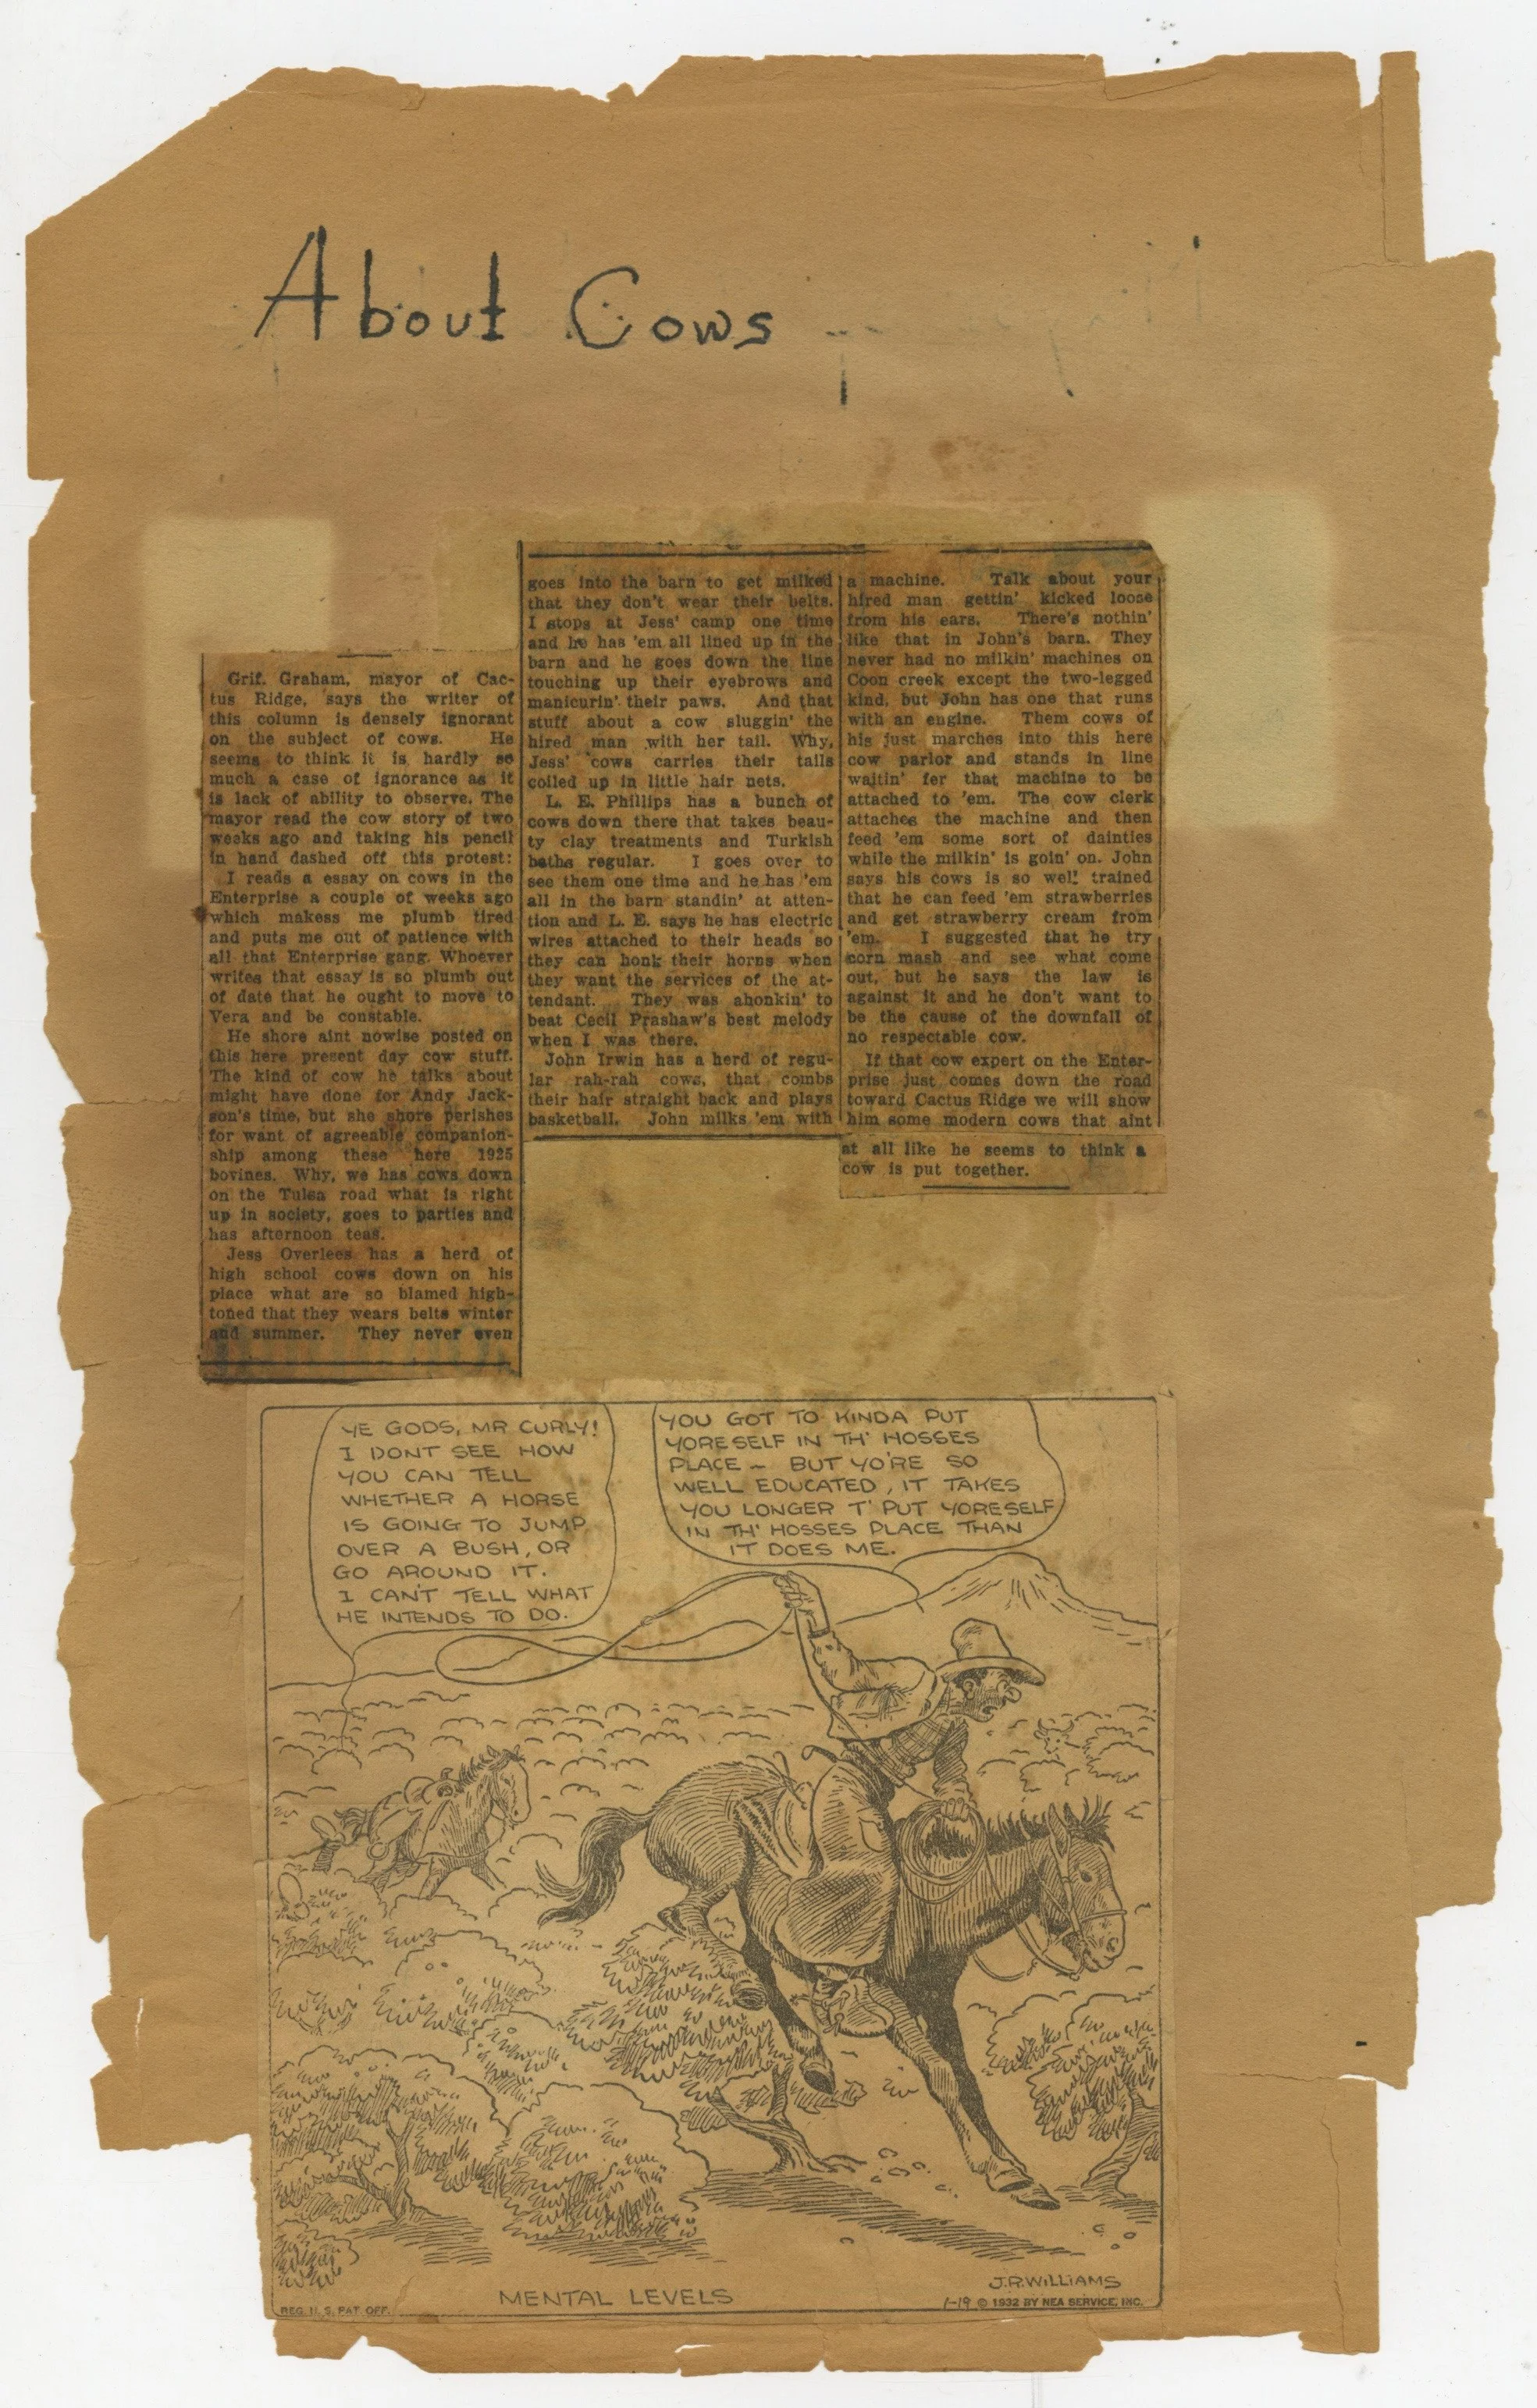 About Cows
Grif. Graham, mayor of Cac-
tus Ridge, says the writer of
this column is densely ignorant
on the subject of cows. He
seems to think it is hardly so
much a case of ignorance as it
is lack of ability to observe. The
mayor read the cow story of two
weeks ago and taking his pencil
in hand dashed off this protest:
I reads a essay on cows in the
Enterprise a couple of weeks ago
which makess me plumb tired
and puts me out of patience with
all that Enterprise gang. Whoever
writes that essay is so plumb out
of date that he ought to move to
Vera and be constable.
He shore aint nowise posted on
this here present day cow stuff.
The kind of cow he talks about
might have done for Andy Jack-
son's time, but she shore perishes
for want of agreeable companion-
ship among these here 1925
bovines. Why, we has cows down
on the Tulsa road what is right
up in society, goes to parties and
has afternoon teas.
Jess Overlees has a herd of
high school cows down on his
place what are so blamed high-
toned that they wears belts winter
and summer. They never even
goes into the barn to get milked
that they don't wear their belts.
I stops at Jess' camp one time
and he has 'em all lined up in the
barn and he goes down the line
touching up their eyebrows and
manicurin' their paws. And that
stuff about a cow sluggin' the
hired man with her tail. Why,
Jess' cows carries their tails
coiled up in little hair nets.
L. E. Phillips has a bunch of
cows down there that takes beau-
ty clay treatments and Turkish
baths regular. I goes over to
see them one time and he has 'em
all in the barn standin' at atten-
tion and L. E. says he has electric
wires attached to their heads so
they can honk their horns when
they want the services of the at-
tendant. They was ahonkin' to
beat Cecil Prashaw's best melody
when I was there.
John Irwin has a herd of regu-
lar rah-rah cows, that combs
their hair straight back and plays
basketball. John milks 'em with
a machine. Talk about your
hired man gettin' kicked loose
from his ears. There's nothin'
like that in John's barn. They
never had no milkin' machines on
Coon creek except the two-legged
kind, but John has one that runs
with an engine. Them cows of
his just marches into this here
cow parlor and stands in line
waitin' fer that machine to be
attached to 'em. The cow clerk
attaches the machine and then
feed 'em some sort of dainties
while the milkin' is goin' on. John
says his cows is so well trained
that he can feed 'em strawberries
and get strawberry cream from
'em. I suggested that he try
corn mash and see what come
out, but he says the law is
against it and he don't want to
be the cause of the downfall of
no respectable cow.
If that cow expert on the Enter-
prise just comes down the road
toward Cactus Ridge we will show
him some modern cows that aint
at all like he seems to think a
cow is put together.
YE GODS, MR CURLY!
I DONT SEE HOW
YOU CAN TELL
WHETHER A HORSE
IS GOING TO JUMP
OVER A BUSH, OR
GO AROUND IT.
I CAN'T TELL WHAT
HE INTENDS TO DO.
YOU GOT TO KINDA PUT
YORESELF IN TH' HOSSES
PLACE ~ BUT YO'RE SO
WELL EDUCATED, IT TAKES
YOU LONGER T' PUT YORESELF
IN TH' HOSSES PLACE THAN
IT DOES ME.
MENTAL LEVELS
J.R.WILLIAMS
REG. U. S. PAT. OFF.
1-19 © 1932 BY NEA SERVICE, INC.